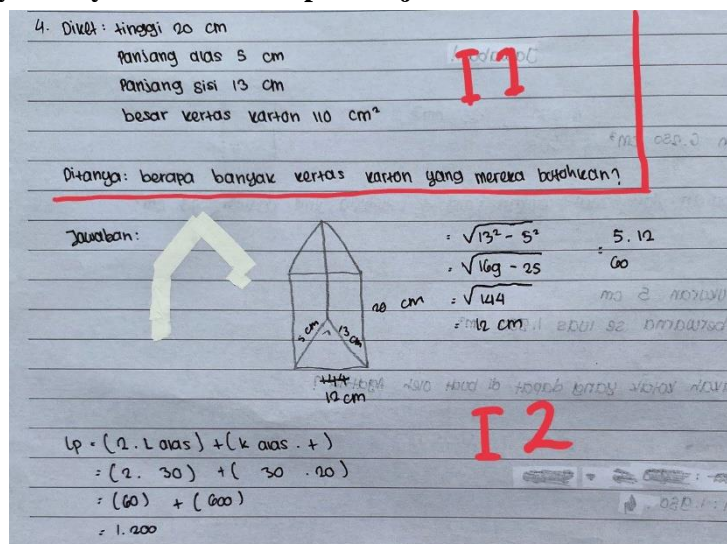 4. Diket: tinggi 20 cm
Panjang alas 5 cm
Panjang sisi 13 cm
besar kertas karton 110 cm²
I1
Ditanya: berapa banyak kertas karton yang mereka butuhkan?
Jawaban:
= √13² - 5²
= √169 - 25
= √144
= 12 cm
= 5. 12
60
20 cm
5 cm
13 cm
12 cm
I2
Lp = (2. L alas) + (k alas . t)
= (2. 30) + ( 30 . 20)
= (60) + (600)
= 1.200